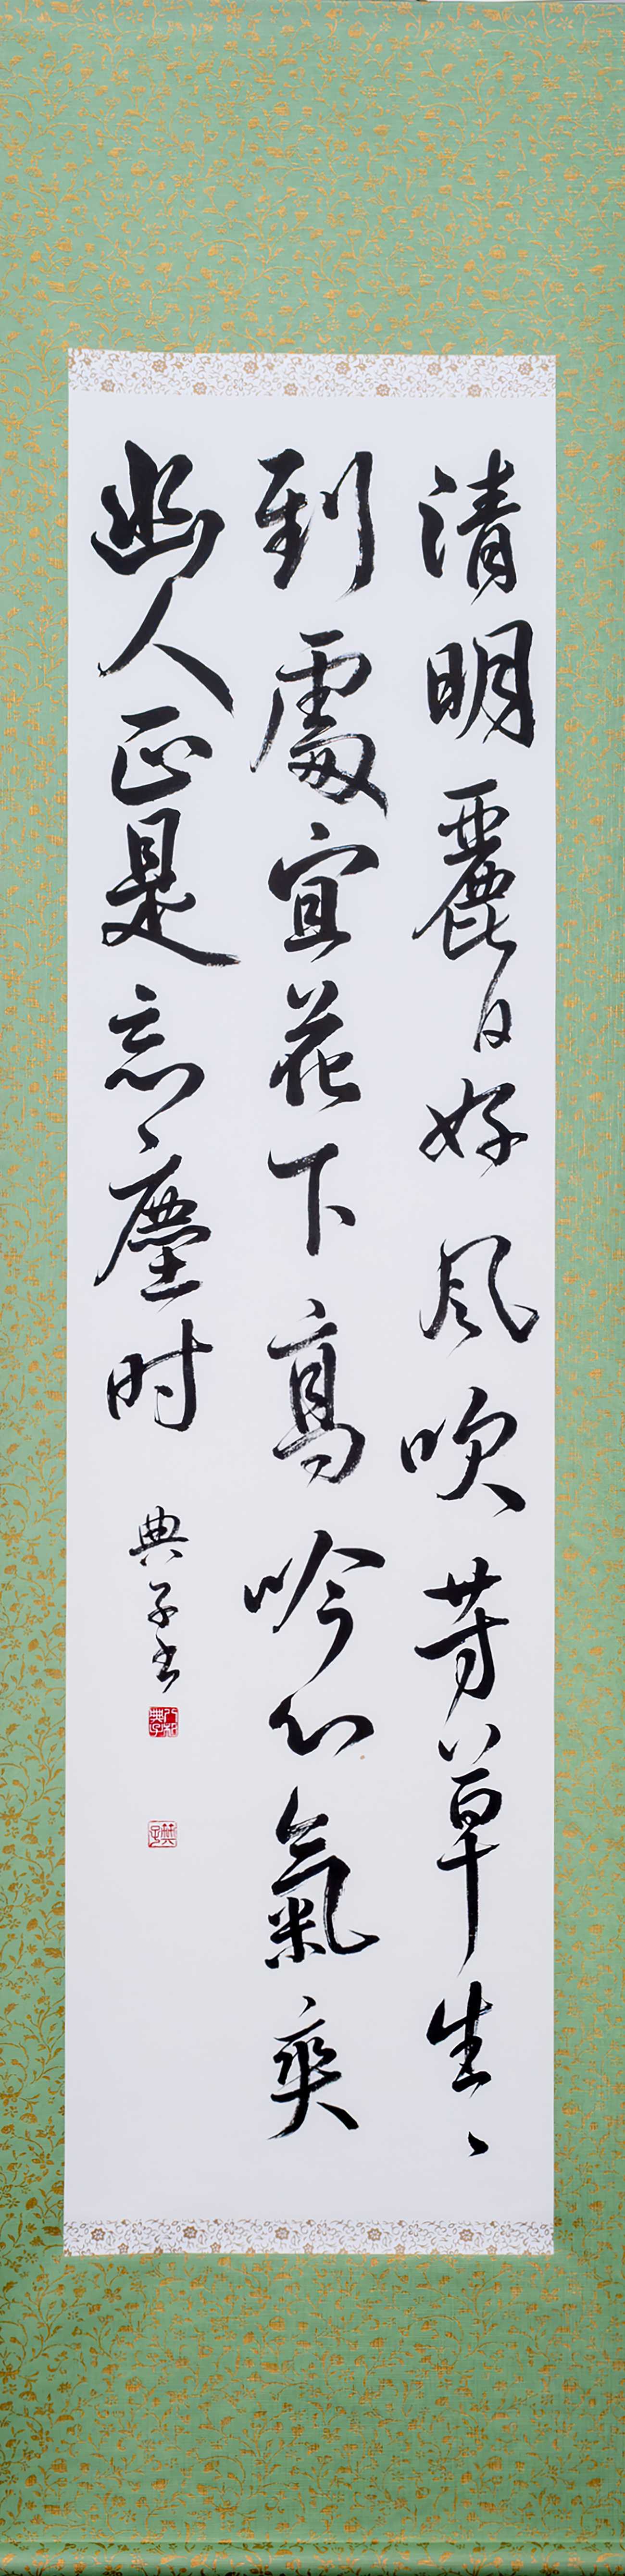 清明麗日好風吹芳草生々
到處宜花下高吟心氣爽
幽人正是忘塵時
典子書